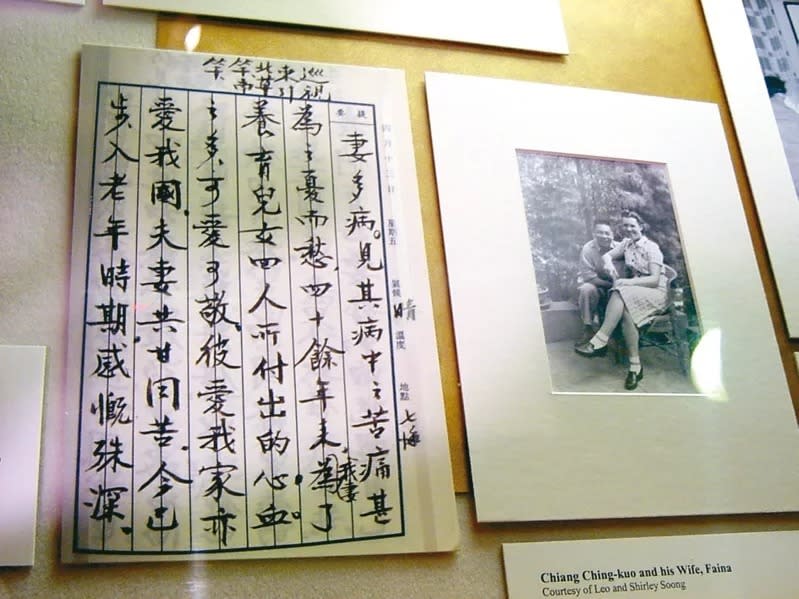 巡視
東引
四月十三日 星期五 氣候 晴 温度 地點 七海
提要
妻多病。見其病中之苦痛甚
為之憂而愁,四十餘年来,我妻為了
養育兒女四人所付出的心血。
之多可愛可敬,彼愛我家亦
愛我國,夫妻共甘同苦,今已
步入老年時期,感慨殊深。
Chiang Ching-kuo and his Wife, Faina
Courtesy of Leo and Shirley Soong